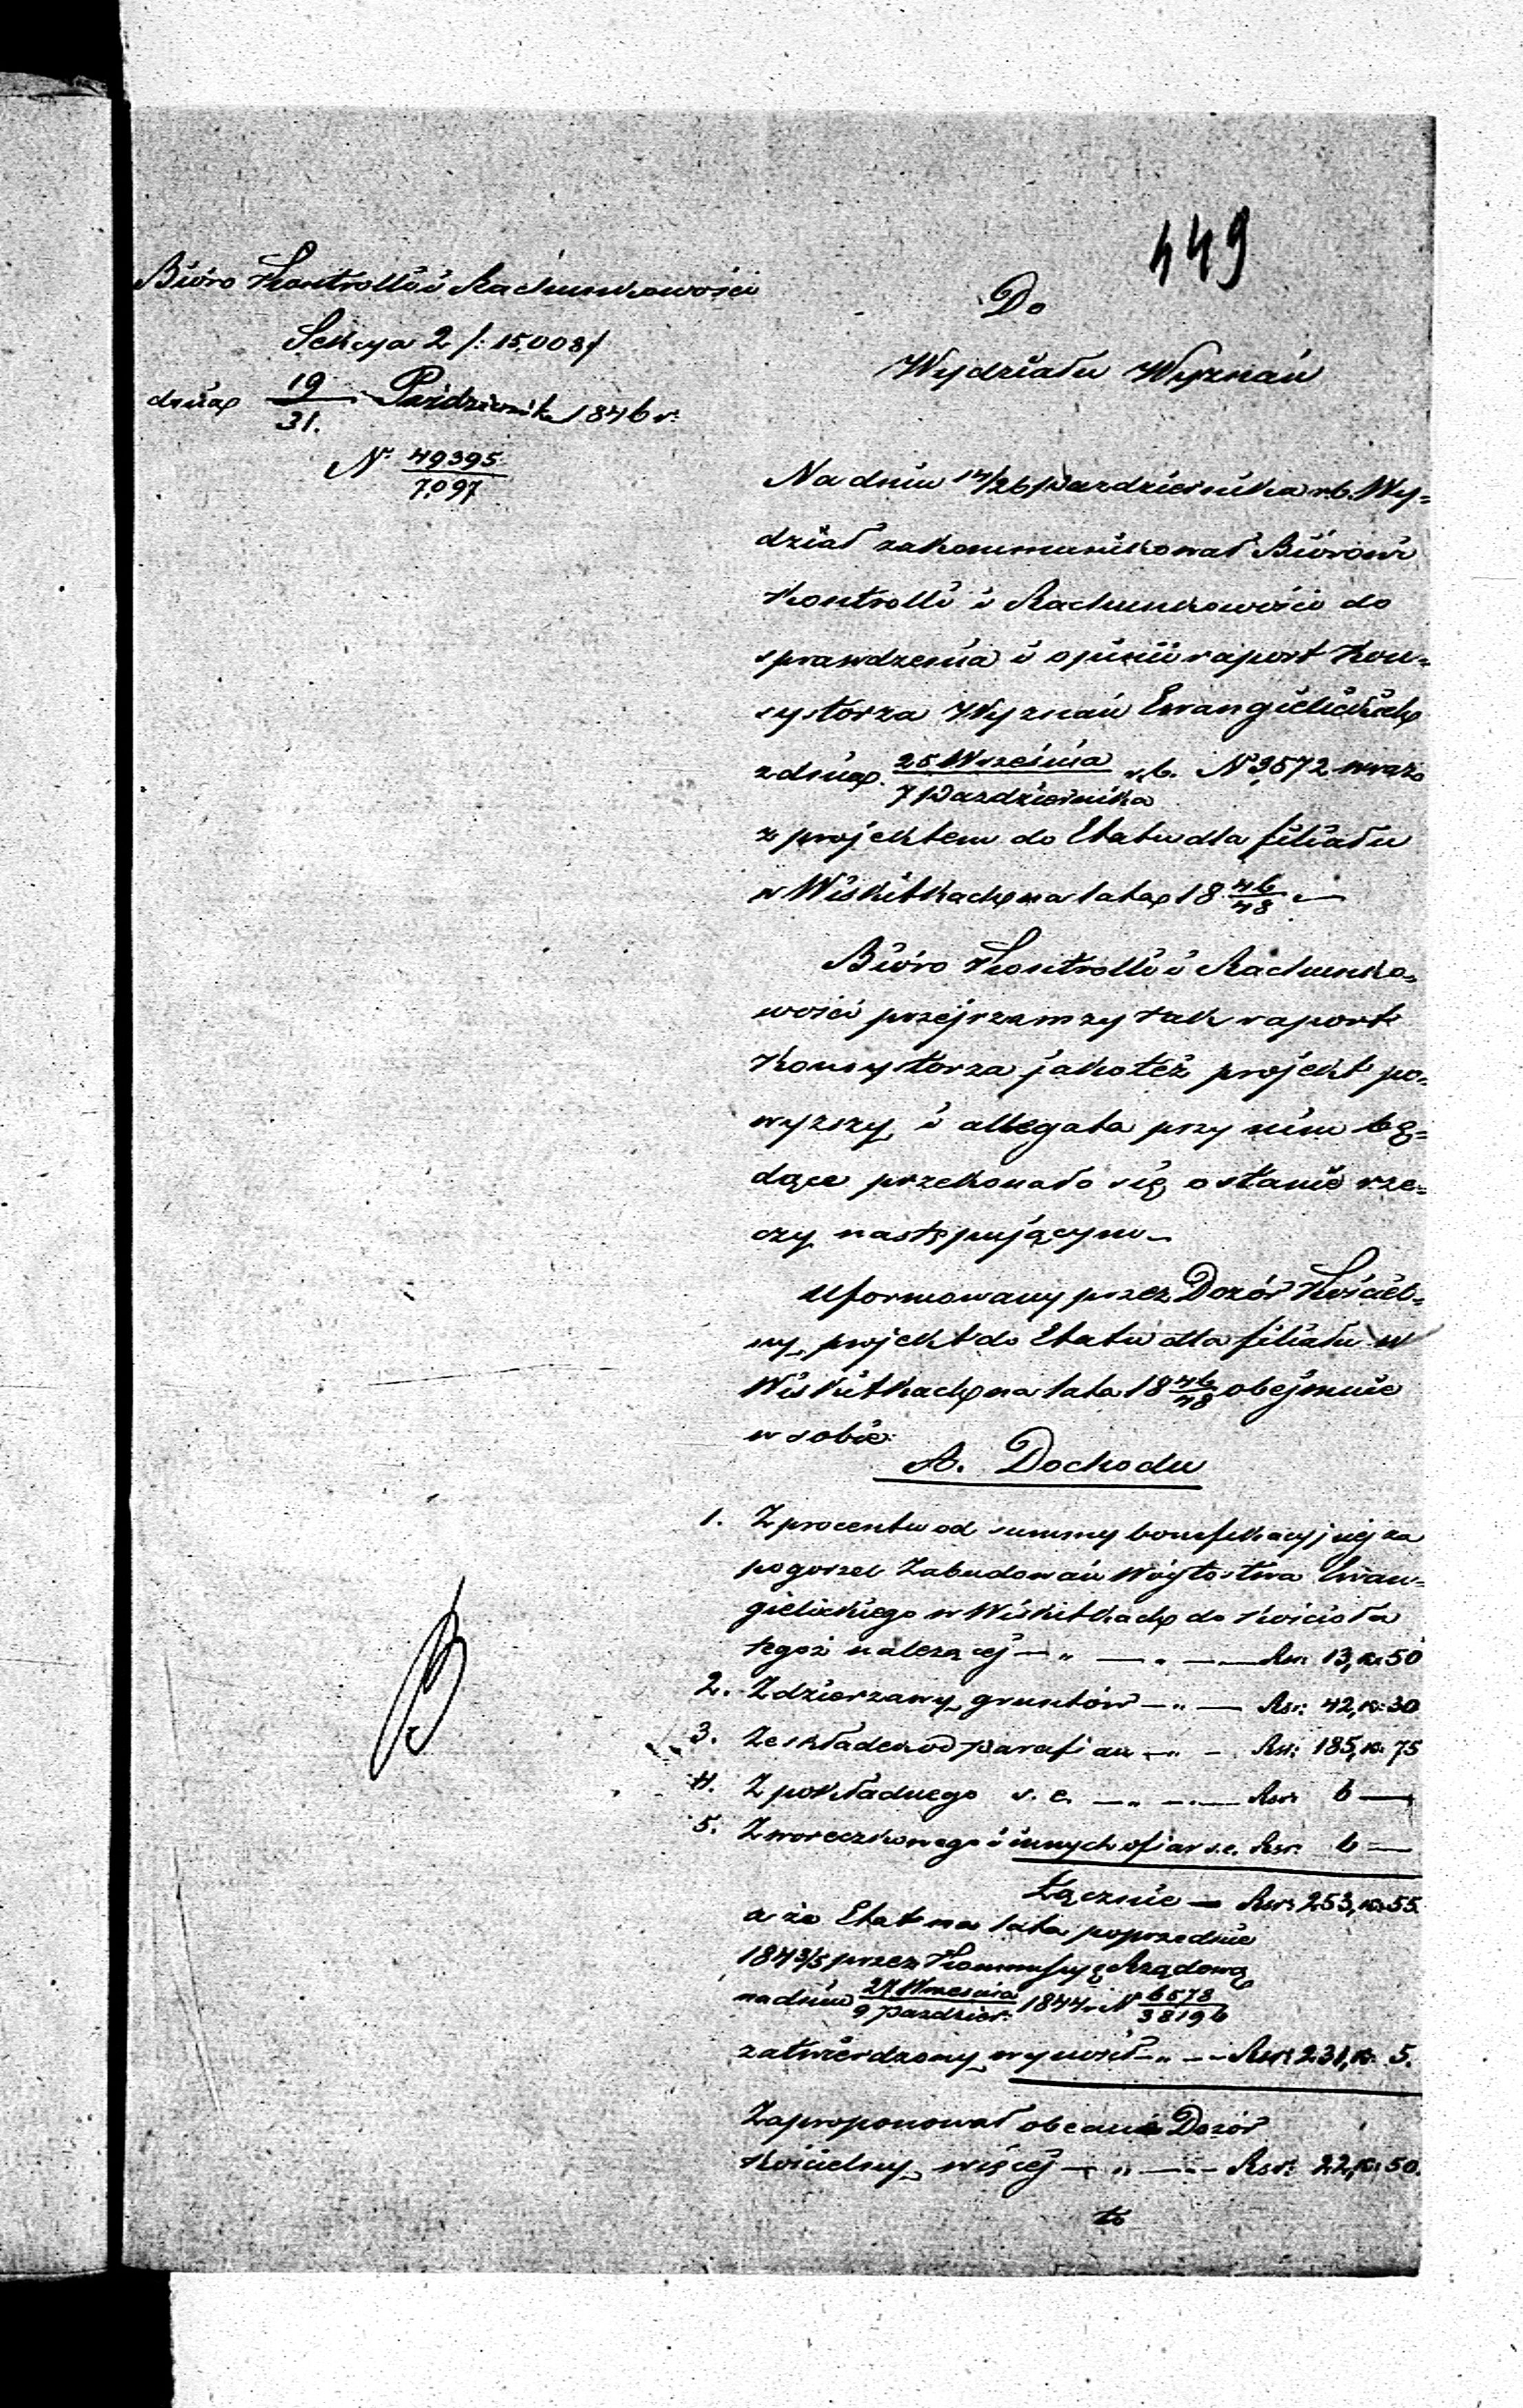 449
Bióro Kontrolli i Rachunkowości
Sekcya 2 /: 15,008 /
dnia 19/31. Październik 1846 r.
Nr 49395/7097
Do
Wydziału Wyznań
Na dniu 14/26 Października r.b. Wy=
dział zakommunikował Biórowi
Kontrolli i Rachunkowości do
sprawdzenia i opinii raport Kon=
systorza Wyznań Ewangielickich
z dnia 25 Września/7 Października r.b. N 3572 wraz
z projektem do Etatu dla filiału
w Wiskitkach na lata 18 46/48 —
Bióro Kontrolli i Rachunko=
wości przejrzawszy tak raport
Konsystorza jakoteż projekt po=
wyższy i allegata przy nim bę=
dące przekonało się o stanie rze=
czy następującym —
Uformowany przez Dozór Kościel=
ny projekt do Etatu dla filiału w
Wiskitkach na lata 18 46/48 obejmuie
w sobie
A. Dochodu
1. Z procentu od summy bonifikacyjnej za
pogorzel Zabudowań Wójtostwa Ewan=
gielickiego w Wiskitkach do Kościoła
tegoż należącej — „ — „ — Rsr. 13, k. 50
2. Z dzierzawy gruntów — „ — Rsr: 42, k. 30
3. Ze składek od parafian — „ — Rsr: 185, k. 75
4. Z pokładnego s. e. — „ — Rsr: 6 —
5. Z woreczkowego i innych ofiar s.e. Rsr. 6 —
Łącznie — Rsr: 253, k. 55
a że Etat na lata poprzednie
1843/5 przez Kommissyę Rządową
na dniu 27 Września/9 Paździer: 1844 r. N 6578/38196
zatwierdzony wynosił — „ — Rsr: 231, k. 5.
Zaproponował obecnie Dozór
Kościelny więcej — „ — Rsr: 22, k. 50.
to